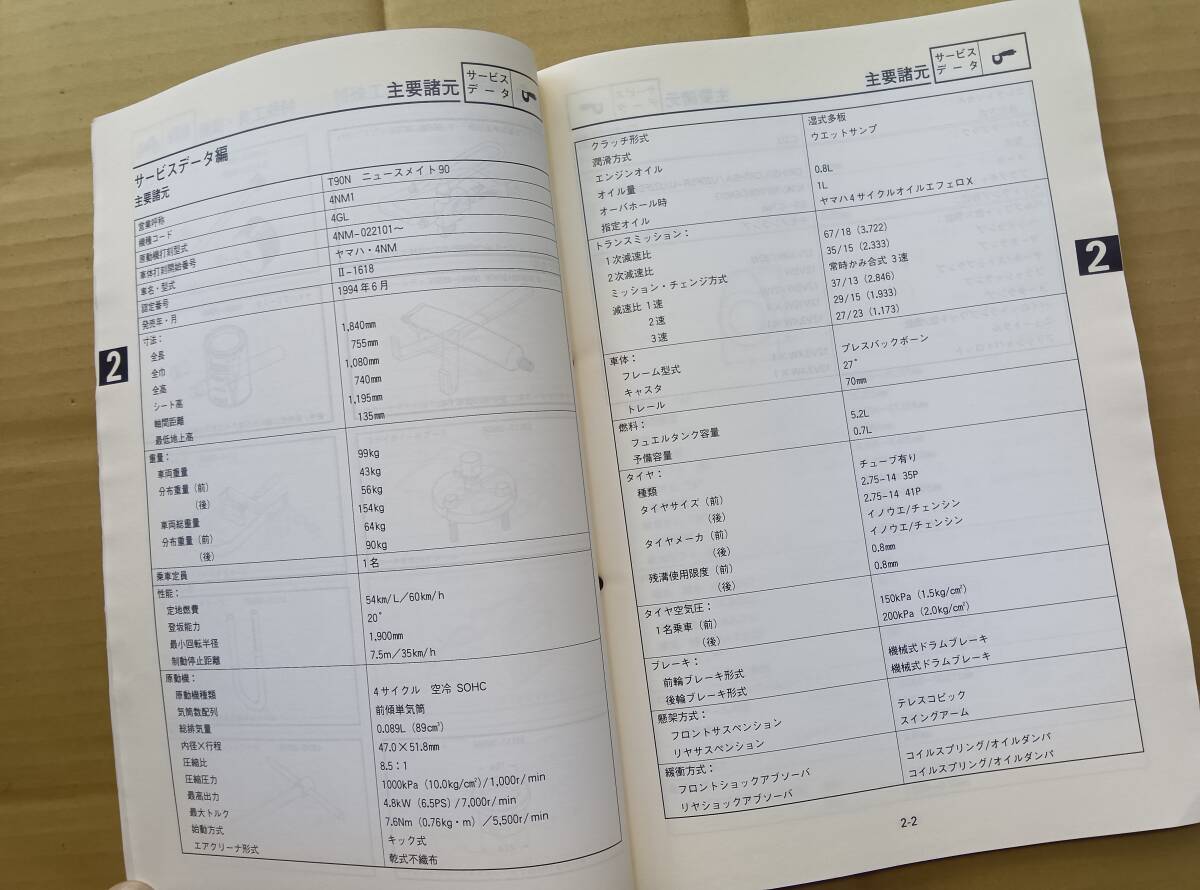 主要諸元
サービス
データ
サービスデータ編
主要諸元
営業呼称 T90N ニュースメイト90
機種コード 4NM1
原動機打刻型式 4GL
車体打刻開始番号 4NM-022101～
車名・型式 ヤマハ・4NM
認定番号 Ⅱ-1618
発売年・月 1994年6月
寸法：
全長 1,840mm
全巾 755mm
全高 1,080mm
シート高 740mm
軸間距離 1,195mm
最低地上高 135mm
重量：
車両重量 99kg
分布重量（前） 43kg
（後） 56kg
車両総重量 154kg
分布重量（前） 64kg
（後） 90kg
乗車定員 1名
性能：
定地燃費 54km/L／60km/h
登坂能力 20°
最小回転半径 1,900mm
制動停止距離 7.5m／35km/h
原動機：
原動機種類 4サイクル 空冷 SOHC
気筒数配列 前傾単気筒
総排気量 0.089L（89cm³）
内径×行程 47.0×51.8mm
圧縮比 8.5：1
圧縮圧力 1000kPa（10.0kg/cm²）/1,000r/min
最高出力 4.8kW（6.5PS）/7,000r/min
最大トルク 7.6Nm（0.76kg・m）／5,500r/min
始動方式 キック式
エアクリーナ形式 乾式不織布
2
主要諸元
サービス
データ
クラッチ形式 湿式多板
潤滑方式 ウエットサンプ
エンジンオイル
オイル量 0.8L
オーバホール時 1L
指定オイル ヤマハ4サイクルオイルエフェロX
トランスミッション：
1次減速比 67/18（3.722）
2次減速比 35/15（2.333）
ミッション・チェンジ方式 常時かみ合式 3速
減速比 1速 37/13（2.846）
2速 29/15（1.933）
3速 27/23（1.173）
車体：
フレーム型式 プレスバックボーン
キャスタ 27°
トレール 70mm
燃料：
フュエルタンク容量 5.2L
予備容量 0.7L
タイヤ：
種類 チューブ有り
タイヤサイズ（前） 2.75-14 35P
（後） 2.75-14 41P
タイヤメーカ（前） イノウエ/チェンシン
（後） イノウエ/チェンシン
残溝使用限度（前） 0.8mm
（後） 0.8mm
タイヤ空気圧：
1名乗車（前） 150kPa（1.5kg/cm²）
（後） 200kPa（2.0kg/cm²）
ブレーキ：
前輪ブレーキ形式 機械式ドラムブレーキ
後輪ブレーキ形式 機械式ドラムブレーキ
懸架方式：
フロントサスペンション テレスコピック
リヤサスペンション スイングアーム
緩衝方式：
フロントショックアブソーバ コイルスプリング/オイルダンパ
リヤショックアブソーバ コイルスプリング/オイルダンパ
2
2-2